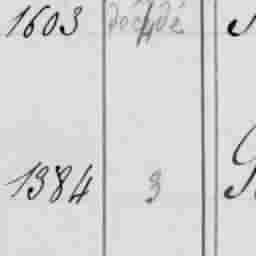 1603 décédé 4
1384 3